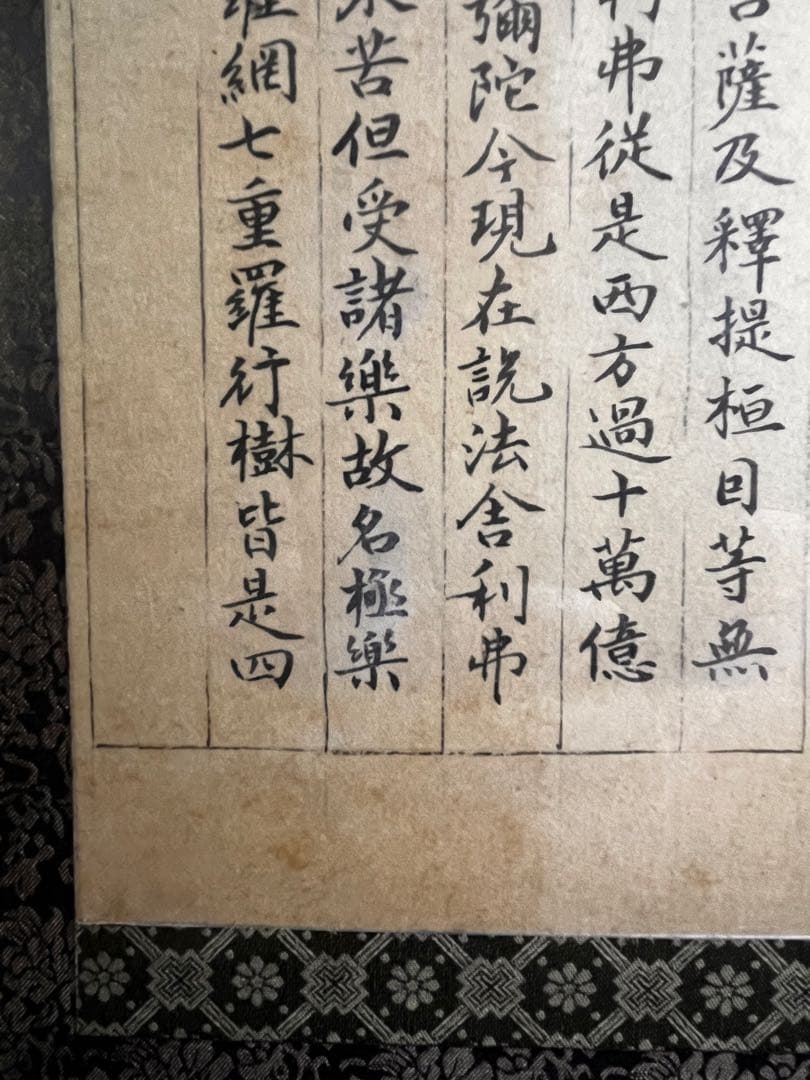 薩及釋提桓因等無
弗従是西方過十萬億
彌陀今現在説法舎利弗
苦但受諸樂故名極樂
網七重羅行樹皆是四